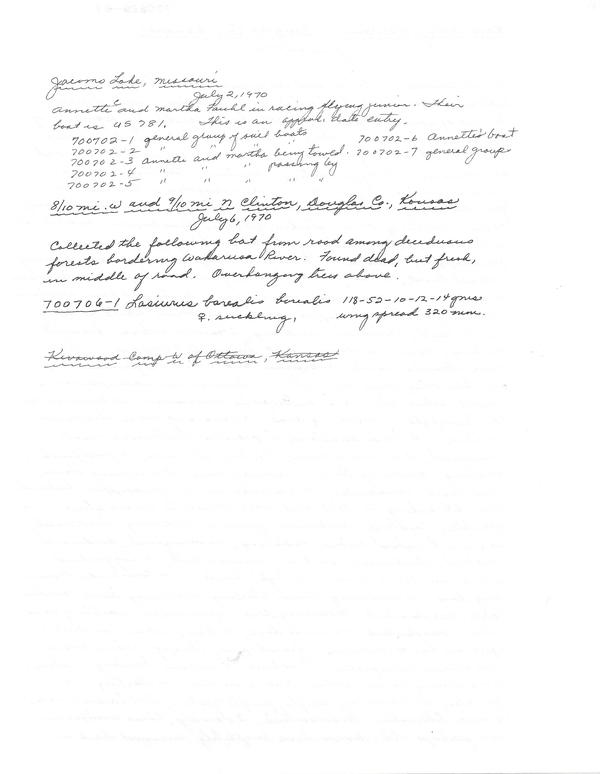 Jacomo Lake, Missouri
July 2, 1970
Annette and Martha Fauhl in racing flying junior. Their
boat is US 781. This is an approx. date entry.
700702-1 general group of sail boats 700702-6 Annette's boat
700702-2 " " " " 700702-7 general group
700702-3 Annette and Martha being towed.
700702-4 " " " passing by
700702-5 " " " " "
8/10 mi. W and 9/10 mi N Clinton, Douglas Co., Kansas
July 6, 1970
Collected the following bat from road among deciduous
forests bordering Wakarusa River. Found dead, but fresh,
in middle of road. Overhanging trees above.
700706-1 Lasiurus borealis borealis 118-52-10-12-14 gms
♀. suckling, wing spread 320 mm.
Kiwawood Camp W of Ottawa, Kansas